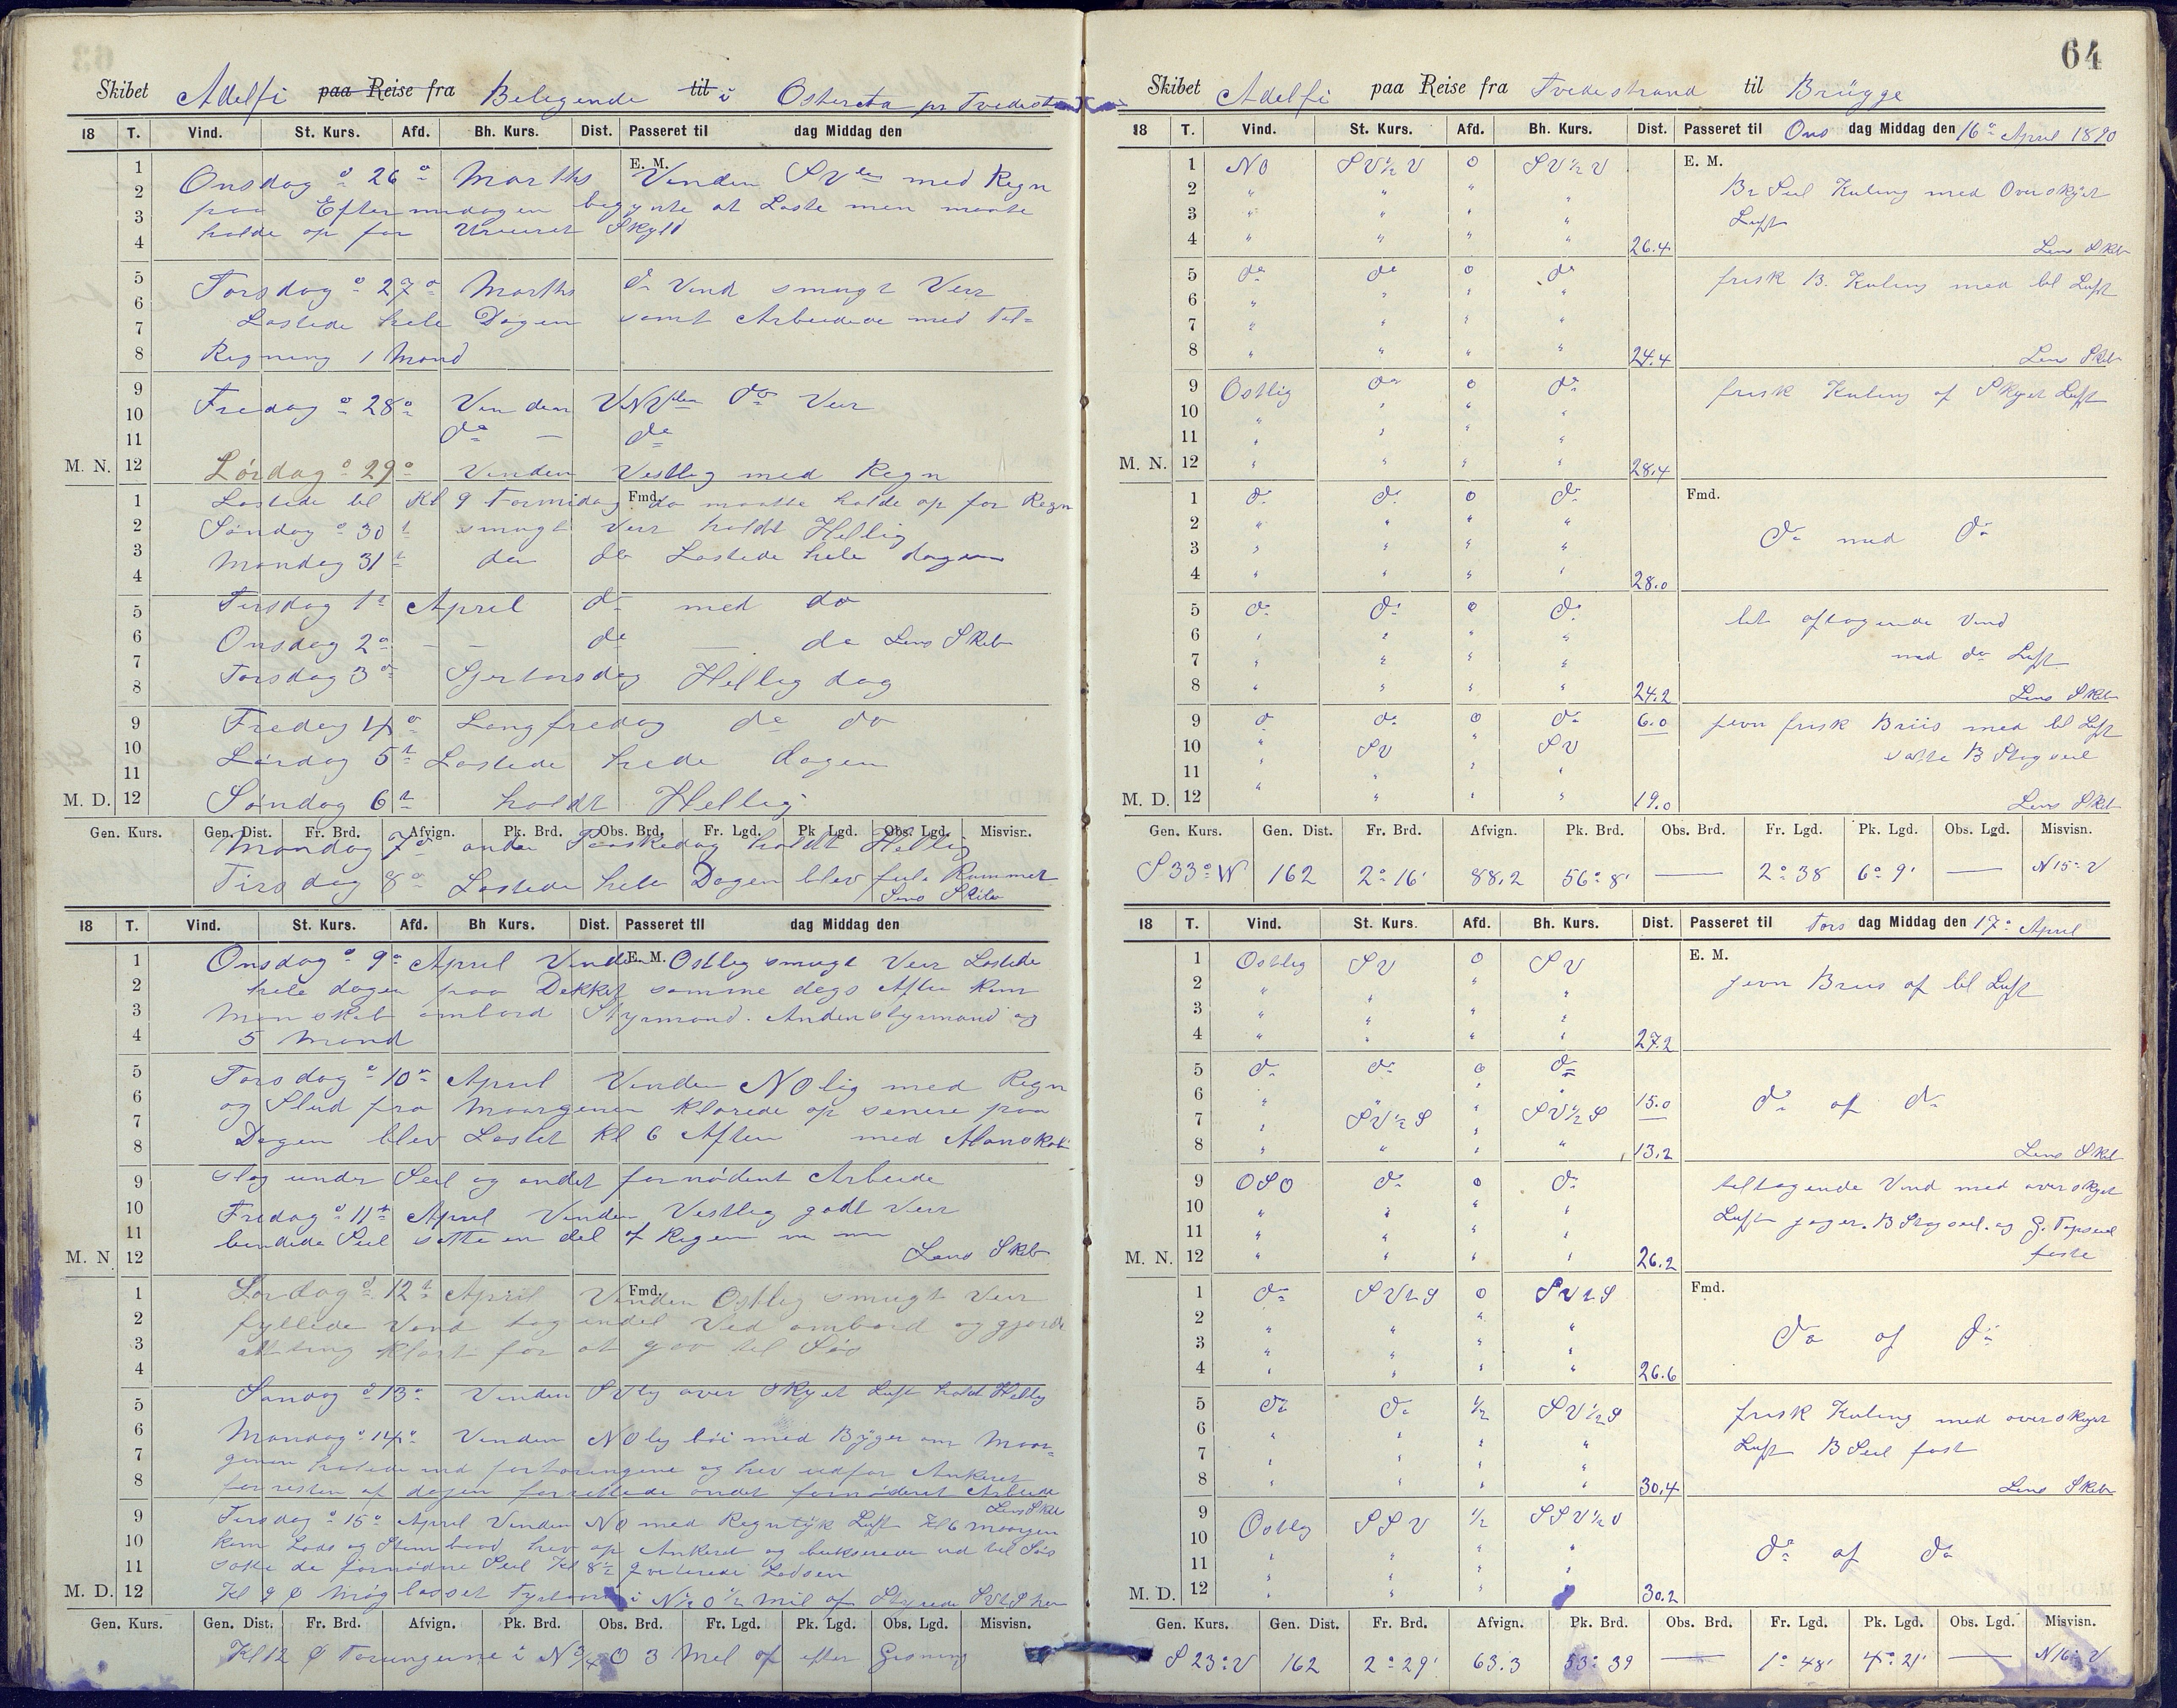 Skibet Adelfi paa Reise fra Belegende til i Ostereta pr Tvedest
18 T. Vind. St. Kurs. Afd. Bh. Kurs. Dist. Passeret til dag Middag den
E. M.
Onsdag d 26de Marths Vinden SVlen med Regn
paa Eftermidagen begynte at Laste men maate
holde op for Skyld
Torsdag d 27de Marths do Vind smugt Veir
Lastede hele Dagen samt Arbeidede med Til=
Rigning 1 Mand
Fredag d 28de Vinden VNVlen do Veir
do — do
Lördag d 29de Vinden Vestlig med Regn
Fmd.
Lastede til Kl 9 Formidag da maatte holde op for Regn
Søndag d 30t smugt Veir holdt Hellig
Mandag 31t do do Lastede hele dagen
Tirsdag 1t April do med do
Onsdag 2de — — do — do Lens Skib
Torsdag 3de Sjertorsdag Hellig dag
Fredag 4de Langfredag do do
Lørdag 5t Lastede hele dagen
Søndag 6t holdt Hellig
Gen. Kurs. Gen. Dist. Fr. Brd. Afvign. Pk. Brd. Obs. Brd. Fr. Lgd. Pk. Lgd. Obs. Lgd. Misvisn.
Mandag 7de anden Paaskedag holdt Hellig
Tirsdag 8de Lastede hele Dagen blev ful. Rummet
Lens Skib
18 T. Vind. St. Kurs. Afd. Bh Kurs. Dist. Passeret til dag Middag den
E. M.
Onsdag d 9de April Vinden Ostlig smugt Veir Lastede
hele dagen paa Dekket samme dags Aften kom
Manskab ombord Styrmand. Andenstyrmand og
5 Mand
Torsdag d 10de April Vinden NOlig med Regn
og Slud fra Maargenen klarede op senere paa
Dagen blev Lastet Kl 6 Aften med Manskab
slog under Seil og andet fornødent Arbeide
Fredag d 11te April Vinden Vestlig godt Veir
bendede Seil satte en del af
Lens Skib
Fmd.
Lørdag d 12t April Vinden Ostlig smugt Veir
fyllede Vand tog endel Ved ombord og gjorde
alting klart for at gaa til Søs
Søndag d 13de Vinden SVlig over skyet Luft holdt Hellig
Mandag d 14de Vinden NOligböi med Byger om Maar=
genen halede ind fortøiningene og hev udfor Ankeret
forresten af dagen forrettede andet fornødent Arbeide
Lens Skib
Tirsdag d 15de April Vinden NO med Regntyk Luft Kl 6 Maargen
kom Lods og Stimbaad hev op Ankeret og bukserede ud til Søs
satte de fornødne Seil Kl 8½ qviterede Lodsen
i ½ mil af Styrede
M. N. M. D.
Gen. Kurs. Gen. Dist. Fr. Brd. Afvign. Pk. Brd. Obs. Brd. Fr. Lgd. Pk. Lgd. Obs. Lgd. Misvisn.
Kl 12 Ø Torungerne i N¾O 3 Mil af efter Gisning
64
Skibet Adelfi paa Reise fra Tvedestrand til Brügge
18 T. Vind. St. Kurs. Afd. Bh. Kurs. Dist. Passeret til Ons dag Middag den 16de April 1890
1 NO SV½V 0 SV½V E. M.
Br Seil Kuling med Overskyet
Luft
4 " " " " 26.4 Lens Skib
5 do do 0 do frisk B. Kuling med bl Luft
8 " " " " 24.4 Lens Skib
9 Ostlig do 0 do frisk Kuling af Skyet Luft
M. N. 12 " " " " 28.4
1 do do 0 do Fmd.
do med do
4 " " " " 28.0
5 do do 0 do lit aftagende Vind
med do Luft
8 " " " " 24.2 Lens Skib
9 do do 0 do 6.0 jevn frisk Briis med bl Luft
10 " SV " SV satte B Stagseil
M. D. 12 " " " " 19.0 Lens Skib
Gen. Kurs. Gen. Dist. Fr. Brd. Afvign. Pk. Brd. Obs. Brd. Fr. Lgd. Pk. Lgd. Obs. Lgd. Misvisn.
S 33° W 162 2° 16' 88.2 56° 8' — 2° 38 6° 9' — N 15° V
18 T. Vind. St. Kurs. Afd. Bh. Kurs. Dist. Passeret til Tors dag Middag den 17de April
1 Ostlig SV 0 SV E. M.
jevn Briis af bl Luft
4 " " " " 27.2
5 do do 0 do
6 " " " " 15.0 do af do
7 " SV½S " SV½S
8 " " " " 13.2 Lens Skib
9 OSO do 0 do tiltagende Vind med overskyet
Luft jager. B Stagseil. og G. Topseil
feste
M. N. 12 " " " " 26.2
1 do SVtS 0 SVtS Fmd.
do af do
4 " " " " 26.6
5 do do ½ SV½S frisk Kuling med overskyet
Luft B Seil fast
8 " " " " 30.4 Lens Skib
9 Ostlig SSV ½ SSV½V
do af do
M. D. 12 " " " " 30.2
Gen. Kurs. Gen. Dist. Fr. Brd. Afvign. Pk. Brd. Obs. Brd. Fr. Lgd. Pk. Lgd. Obs. Lgd. Misvisn.
S 23° V 162 2° 29' 63.3 53° 39 — 1° 48' 4° 21' — N 16° V